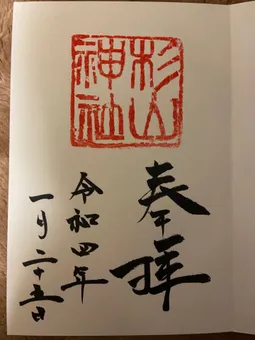 奉拝
杉山
神社
令和四年
一月二十五日